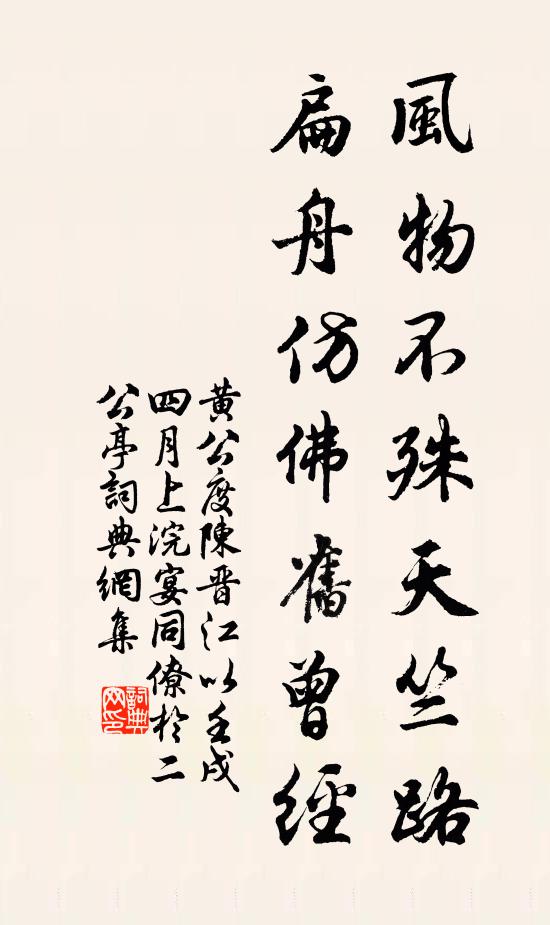 風物不殊天竺路
扁舟仿佛舊曾經
黃公度陳晋江以壬戌
四月上浣宴同僚於二
公亭詞典網集
詞典网印